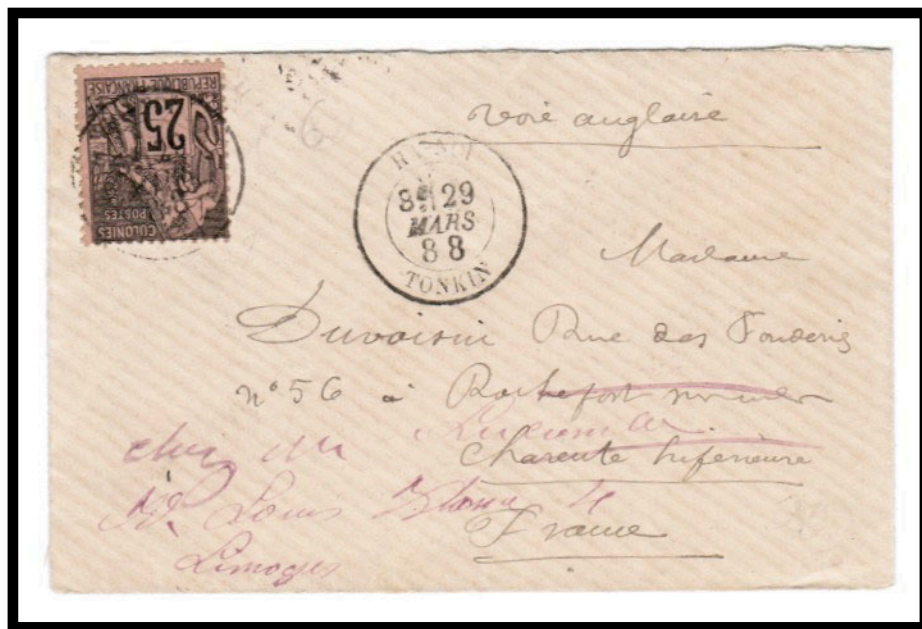 RÉPUBLIQUE FRANÇAISE
25
COLONIES
POSTES
Voie anglaise
HANOI
29
MARS
88
TONKIN
Madame
Duvoisin Rue des Fonderies
n° 56 à Rochefort sur mer
Charente Inférieure
France
chez Mr
Louis Blanc
Limoges